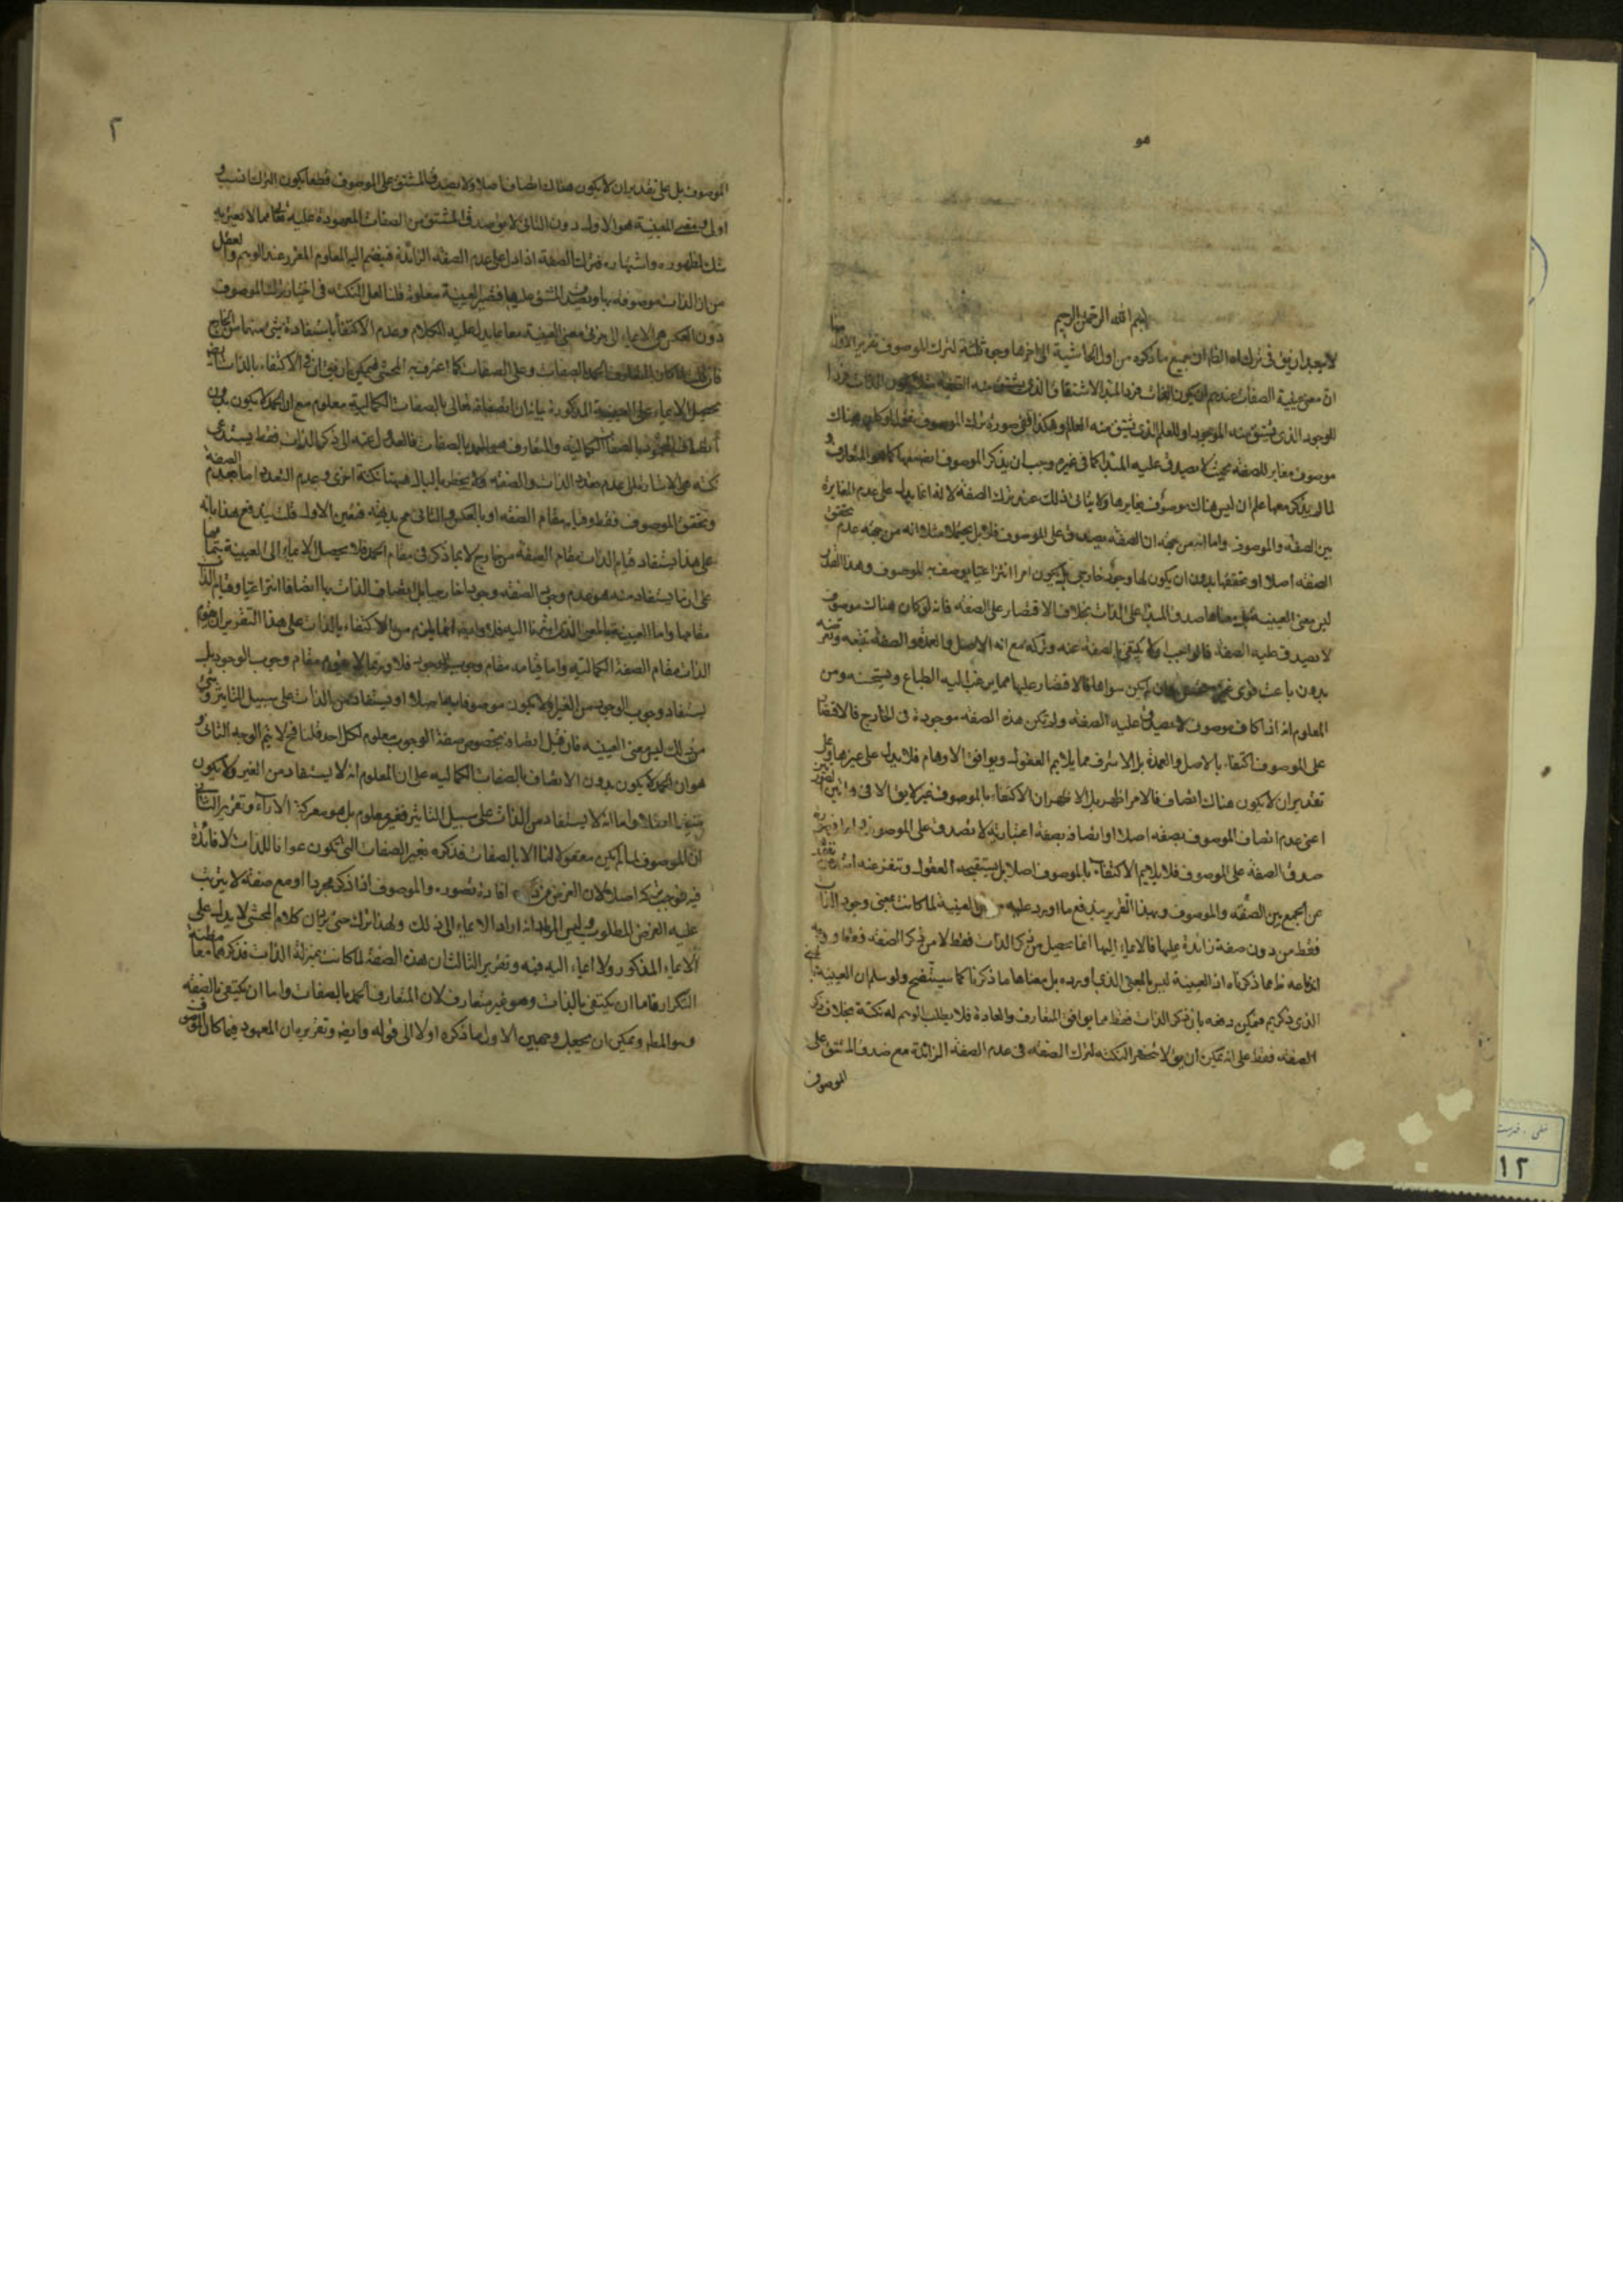 هو
بسم الله الرحمن الرحيم
لا يبعد ان يق في ترك اه الظ ان جميع ما ذكره من اول الحاشية الى اخرها وجوه ثلثة لترك الموصوف تقرير الاول
ان معنى عينية الصفات عندهم ان يكون الذات فردا لمبدا الاشتقاق الذي يشتق منه الصفة الذات فردا
للوجود الذي يشتق منه الموجود او للعلم الذي يشتق منه العالم وهكذا ففي صورة ترك الموصوف هناك
موصوف مغاير للصفة بحيث لا يصدق عليه المبدا كما في غيره وجب ان يذكر الموصوف ايضا معها كما هو المتعارف و
لما لم يذكر معها علم ان ليس هناك موصوف يغايرها ولا يتاتى ذلك عند ترك الصفة لانه انما يدل على عدم المغايرة
بين الصفة والموصوف واما انه من جهة ان الصفة يصدق على الموصوف فلا بل يحتمل مثلا انه من جهة عدم تحقق
الصفة اصلا او تحققها بدون ان يكون لها وجود خارجي بل يكون امرا انتزاعيا يوصف به الموصوف وهذا القدر
ليس معنى العينية بل معناها صدق المبدا على الذات بخلاف الاقتصار على الصفة فانه لو كان هناك موصوف
لا يصدق عليه الصفة فالواجب ولا يكتفي بالصفة عنه وتركه مع انه الاصل والعمدة والصفة تبعه وفرعه
بدون باعث قوي لم يكن سواها فالاقتصار عليها مما يرغب اليه الطباع ويستحسنه ومن
المعلوم انه اذا كان موصوف لا يصدق عليه الصفة ولم تكن هذه الصفة موجودة في الخارج فالاقتصار
على الموصوف اكتفاء بالاصل والعمدة بل الاشرف مما يلايم العقول ويوافق الاوهام فلا يدل على غيرها وعلى
تقدير ان لا يكون هناك اتصاف فالامر اظهر بل الاظهر ان الاكتفاء بالموصوف غير لايق الا في
اعني عدم اتصاف الموصوف بصفة اصلا او اتصافه بصفة اعتبارية لا تصدق على الموصوف واما في صورة
صدق الصفة على الموصوف فلا يلايم الاكتفاء بالموصوف اصلا بل يستقبحه العقول وتنفر عنه
عن الجمع بين الصفة والموصوف وبهذا التقرير يندفع ما اورد عليه العينية لما كانت بمعنى وجود الذات
فقط من دون صفة زائدة عليها فالايماء اليها انما يحصل من ذكر الذات فقط لا من ذكر الصفة فقط
اندفاعه ظ مما ذكرناه اذ العينية ليس بالمعنى الذي اورده بل معناها ما ذكرنا كما سيتضح ولو سلم ان العينية بالمعنى
الذي ذكره فيمكن دفعه بان ذكر الذات فقط مما يوافق المتعارف والعادة فلا يطلب الوهم له نكتة بخلاف ذكر
الصفة فقط على انه يمكن ان يق لا تنحصر النكتة لترك الصفة في عدم الصفة الزائدة مع صدق المشتق على
الموصوف
٢
الموصوف بل على تقدير ان لا يكون هناك اتصاف اصلا ولا يصدق المشتق على الموصوف قطعا يكون الترك انسب و
اولى ومقتضى العينية هو الاول دون الثاني لا يق صدق المشتق من الصفات المعهودة عليه تعالى مما لا يعتريه
شك لظهوره واشتهاره فترك الصفة اذا دل على عدم الصفة الزائدة فينضم اليه المعلوم المقرر عند الوهم والعقل
من ان الذات موصوفة بها وتصدق المشتق عليها فتصير العينية معلومة قلنا لعل النكتة في اختيار ترك الموصوف
دون العكس هي الايماء الى جزئي معنى العينية معا بما يدل عليه الكلام وعدم الاكتفاء باستفادة شيء منهما من الخارج
فان قلت لما كان المتعارف الحمد الصفات وعلى الصفات كما اعترف به المحشي فيمكن ان يق ان في الاكتفاء بالذات ايضا
يحصل الايماء على العينية المذكورة بيانه ان اتصافه تعالى بالصفات الكمالية معلوم مع ان الحمد لا يكون بدون
اتصاف المحمود بالصفات الكمالية والمتعارف هو الحمد بالصفات فالعدول عنه الى ذكر الذات فقط يستدعي
نكتة هي الاشارة الى عدم تعدد الذات والصفة ولا يخطر بالبال ههنا نكتة اخرى وعدم التعدد اما بعدم الصفة
وتحقق الموصوف فقط وقيامه مقام الصفة او بالعكس والثاني مح بديهة فتعين الاول قلت يندفع هذا بانه
على هذا يستفاد قيام الذات مقام الصفة من خارج لا بما ذكر في مقام الحمد فلا يحصل الايماء الى العينية بتمامها
على ان ما يستفاد منه هو عدم وجود الصفة وجودا خارجيا بل اتصاف الذات بها اتصافا انتزاعيا وقيام الذات
مقامها واما العينية بالمعنى الذي اشرنا اليه فلا وايضا انما يلزم من الاكتفاء بالذات على هذا التقرير ان يقوم
الذات مقام الصفة الكمالية واما قيامه مقام وجوب الوجود فلا وربما لا يقوم مقام وجوب الوجود بل
يستفاد وجوب الوجود من الغير ولا يكون موصوفا بها اصلا او يستفاد من الذات على سبيل التاثير وشيء
من ذلك ليس معنى العينية فان قيل اتصافه بخصوص صفة الوجوب معلوم لكل احد قلنا فح لا يتم الوجه الثاني و
هو ان الحمد لا يكون بدون الاتصاف بالصفات الكمالية على ان المعلوم انه لا يستفاد من الغير ولا يكون
منتفيا اصلا واما انه لا يستفاد من الذات على سبيل التاثير فغير معلوم بل هو معركة الاراء وتقرير الثاني
ان الموصوف لما لم يكن معقولا لنا الا بالصفات فذكره بغير الصفات التي تكون عوانا للذات لا فائدة
فيه فوجب تركه اصلا لان الغرض من ذكره افادة تصوره والموصوف اذا ذكر مجردا او مع صفة لا يترتب
عليه الغرض المطلوب وليس المراد انه اراد الايماء الى ذلك ولهذا ترك حتى يرد ان كلام المحشي لا يدل على
الايماء المذكور ولا ايماء اليه فيه وتقرير الثالث ان هذه الصفة لما كانت بمنزلة الذات فذكرهما معا مظنة
التكرار فاما ان يكتفي بالذات وهو غير متعارف لان المتعارف الحمد بالصفات واما ان يكتفي بالصفة
وهو المطلوب ويمكن ان يجعل وجهين الاول ما ذكره اولا الى قوله وايضا وتقريره ان المعهود فيما كان الموصوف
نسخه خطی ، فهرست
١٢